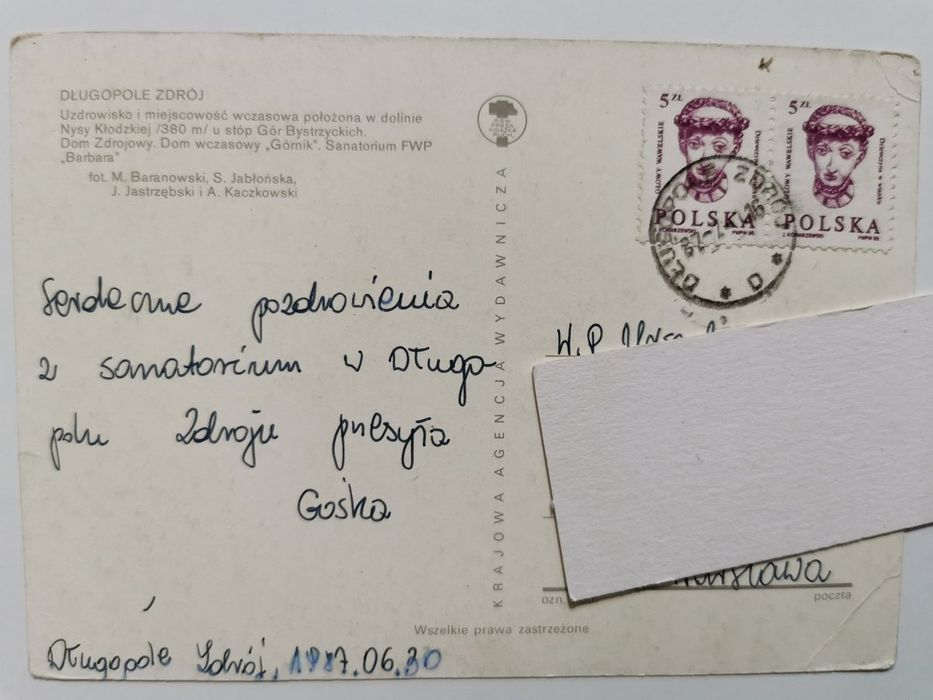 DŁUGOPOLE ZDRÓJ
Uzdrowisko i miejscowość wczasowa położona w dolinie
Nysy Kłodzkiej /380 m/ u stóp Gór Bystrzyckich.
Dom Zdrojowy. Dom wczasowy „Górnik". Sanatorium FWP
„Barbara"
fot. M. Baranowski, S. Jabłońska,
J. Jastrzębski i A. Kaczkowski
Serdeczne pozdrowienia
z sanatorium w Długo
polu Zdroju przesyła
Gośka
Długopole Zdrój, 1987.06.30
KRAJOWA AGENCJA WYDAWNICZA
Wszelkie prawa zastrzeżone
5 ZŁ
GŁOWY WAWELSKIE
POLSKA
J. KONARZEWSKI PWPW 85
5 ZŁ
GŁOWY WAWELSKIE
POLSKA
J. KONARZEWSKI PWPW 85
DŁUGOPOLE ZDRÓJ
W.P.
Warszawa
poczta